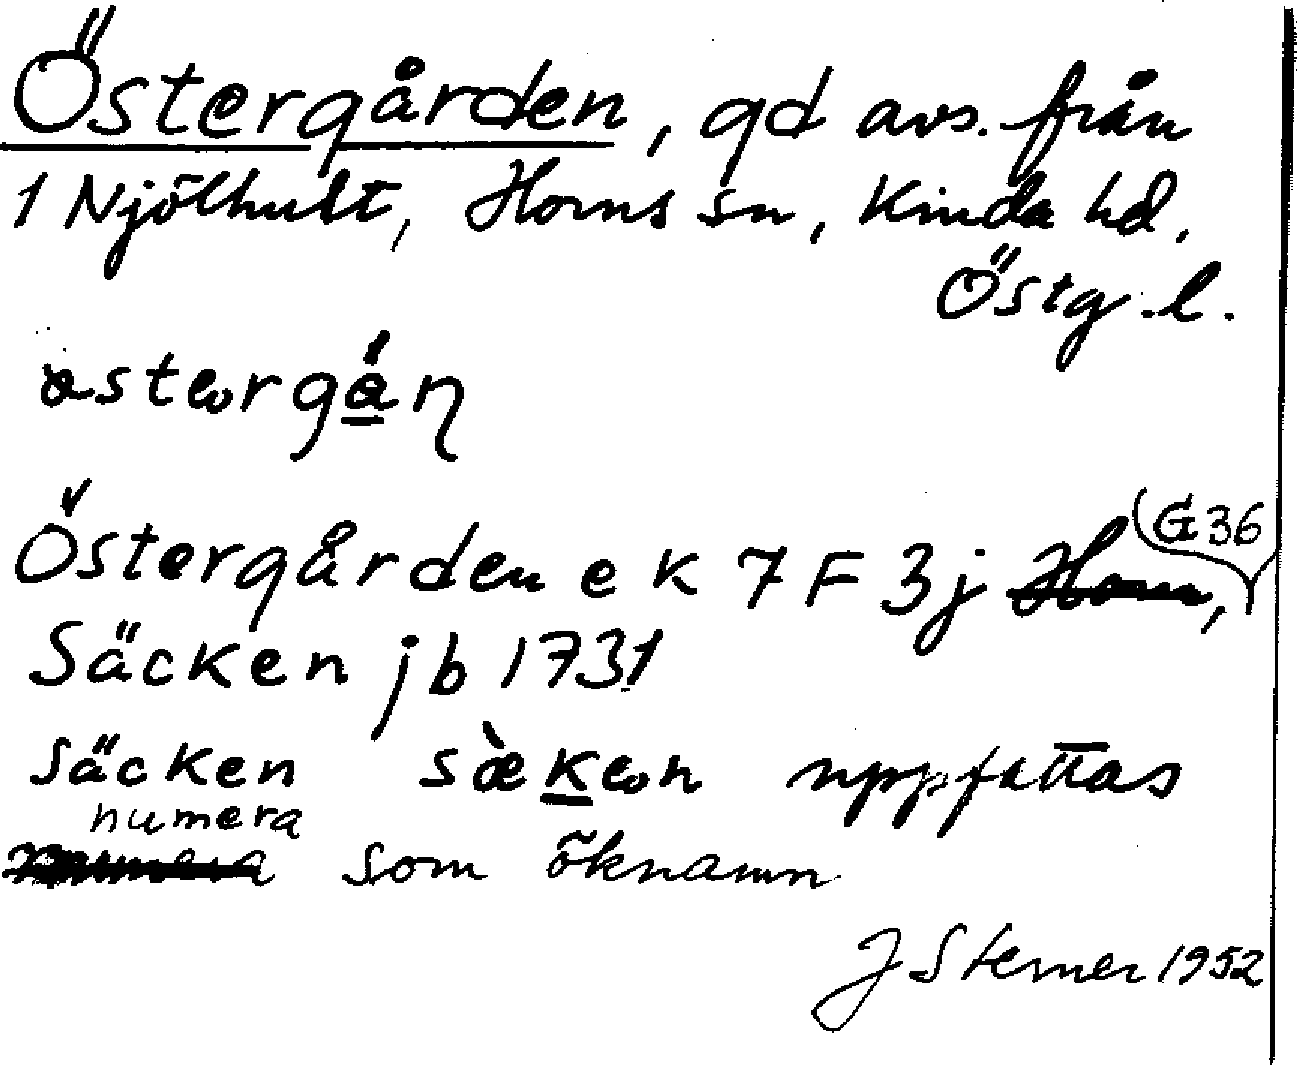 Östergården, gd avs. från
1 Njölhult, Horns sn, Kinda hd,
Östg.l.
Östergården ek 7 F 3j G36,
Säcken jb 1731
Säcken uppfattas
numera
som öknamn
J Sterner 1952